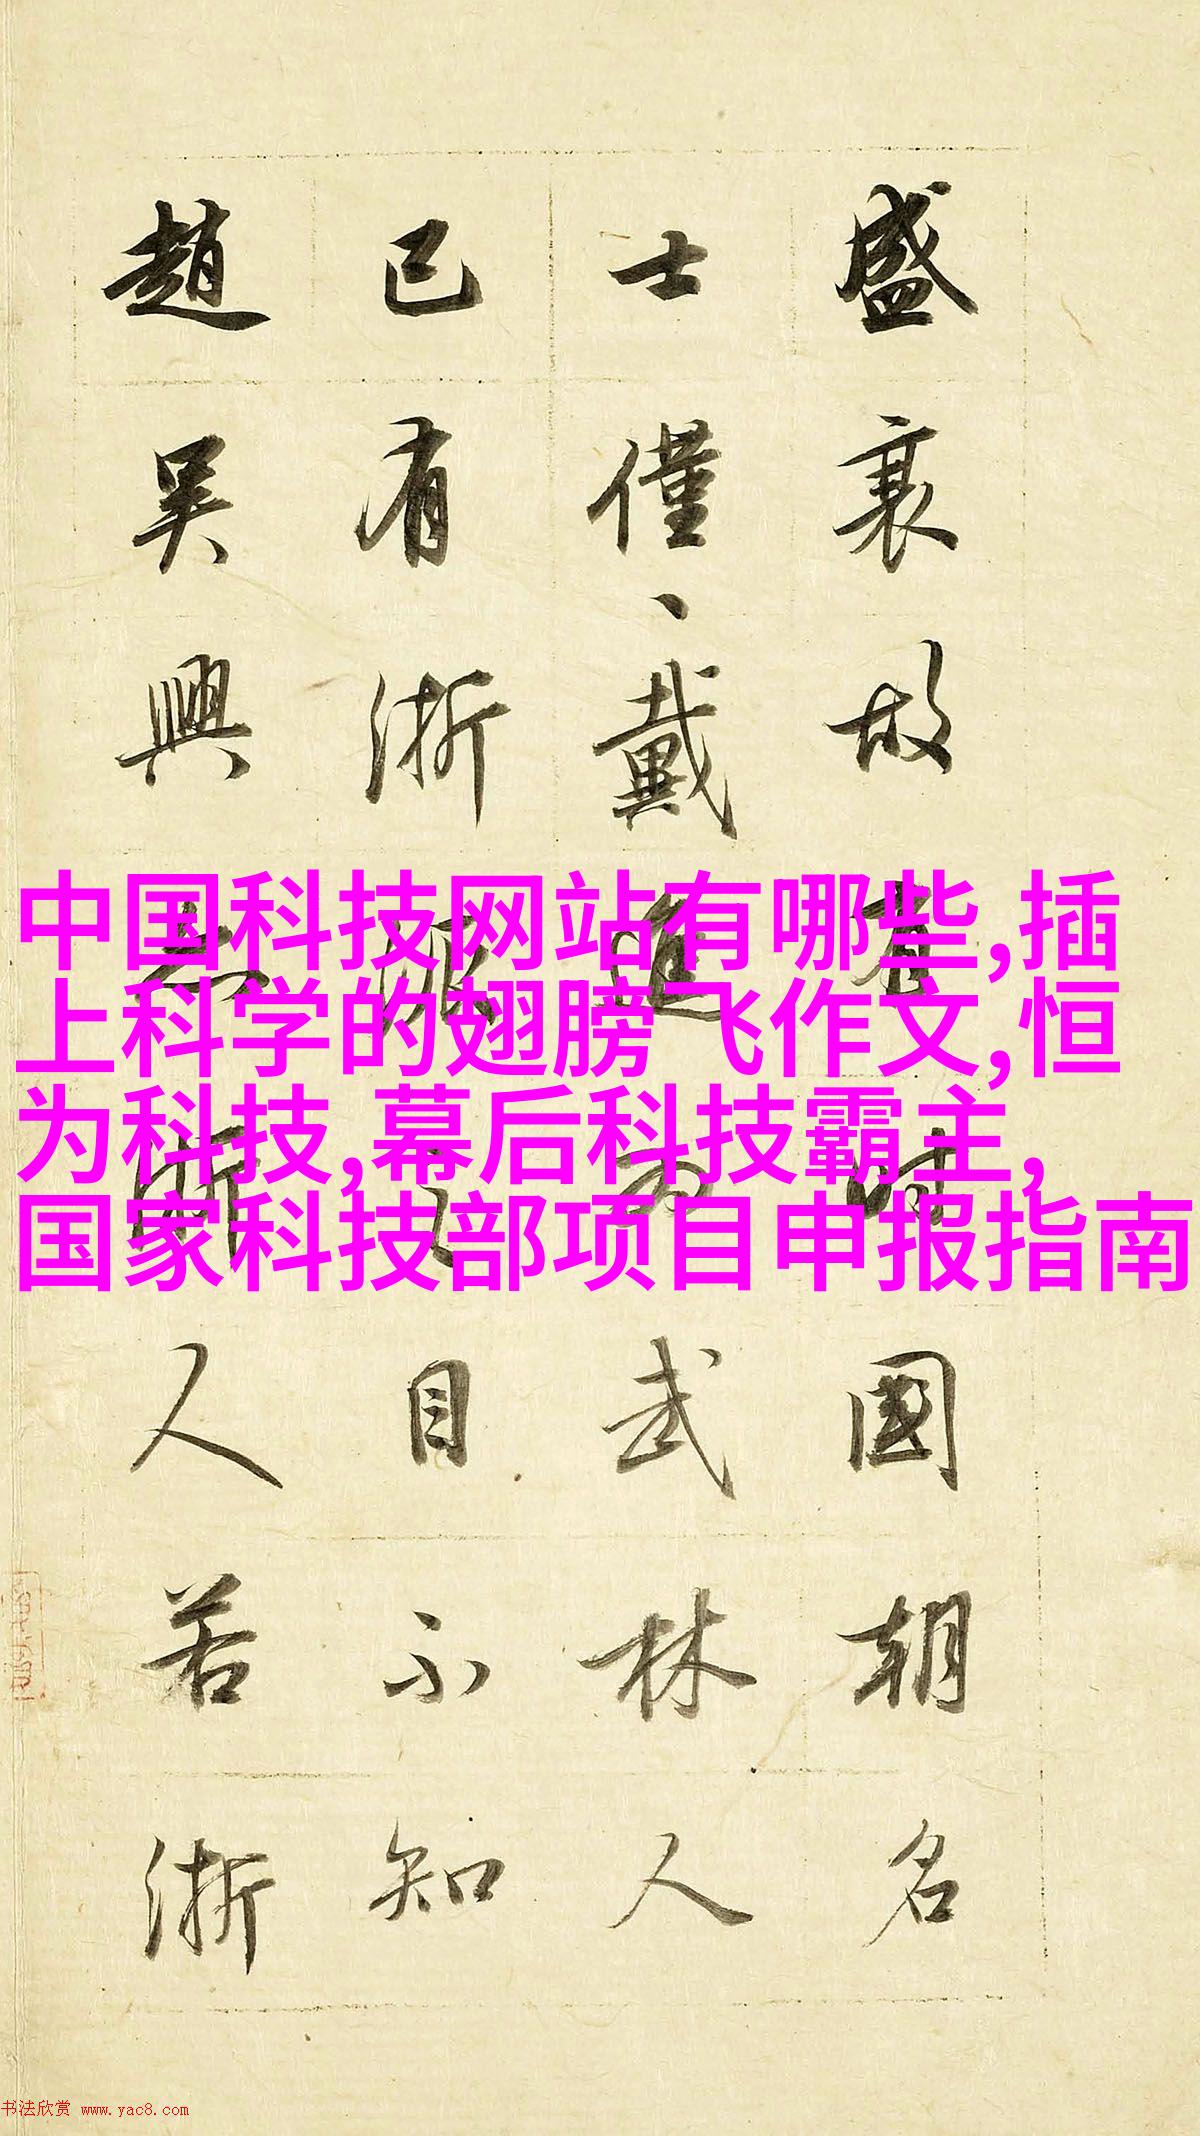 中国科技网站有哪些,插
上科学的翅膀飞作文,恒
为科技,幕后科技霸主,
国家科技部项目申报指南
盛衰故有時國朝名
士僅、戴進為武林人
已有浙派之目不知
趙吳興亦浙人若浙
书法欣赏 www.yac8.com